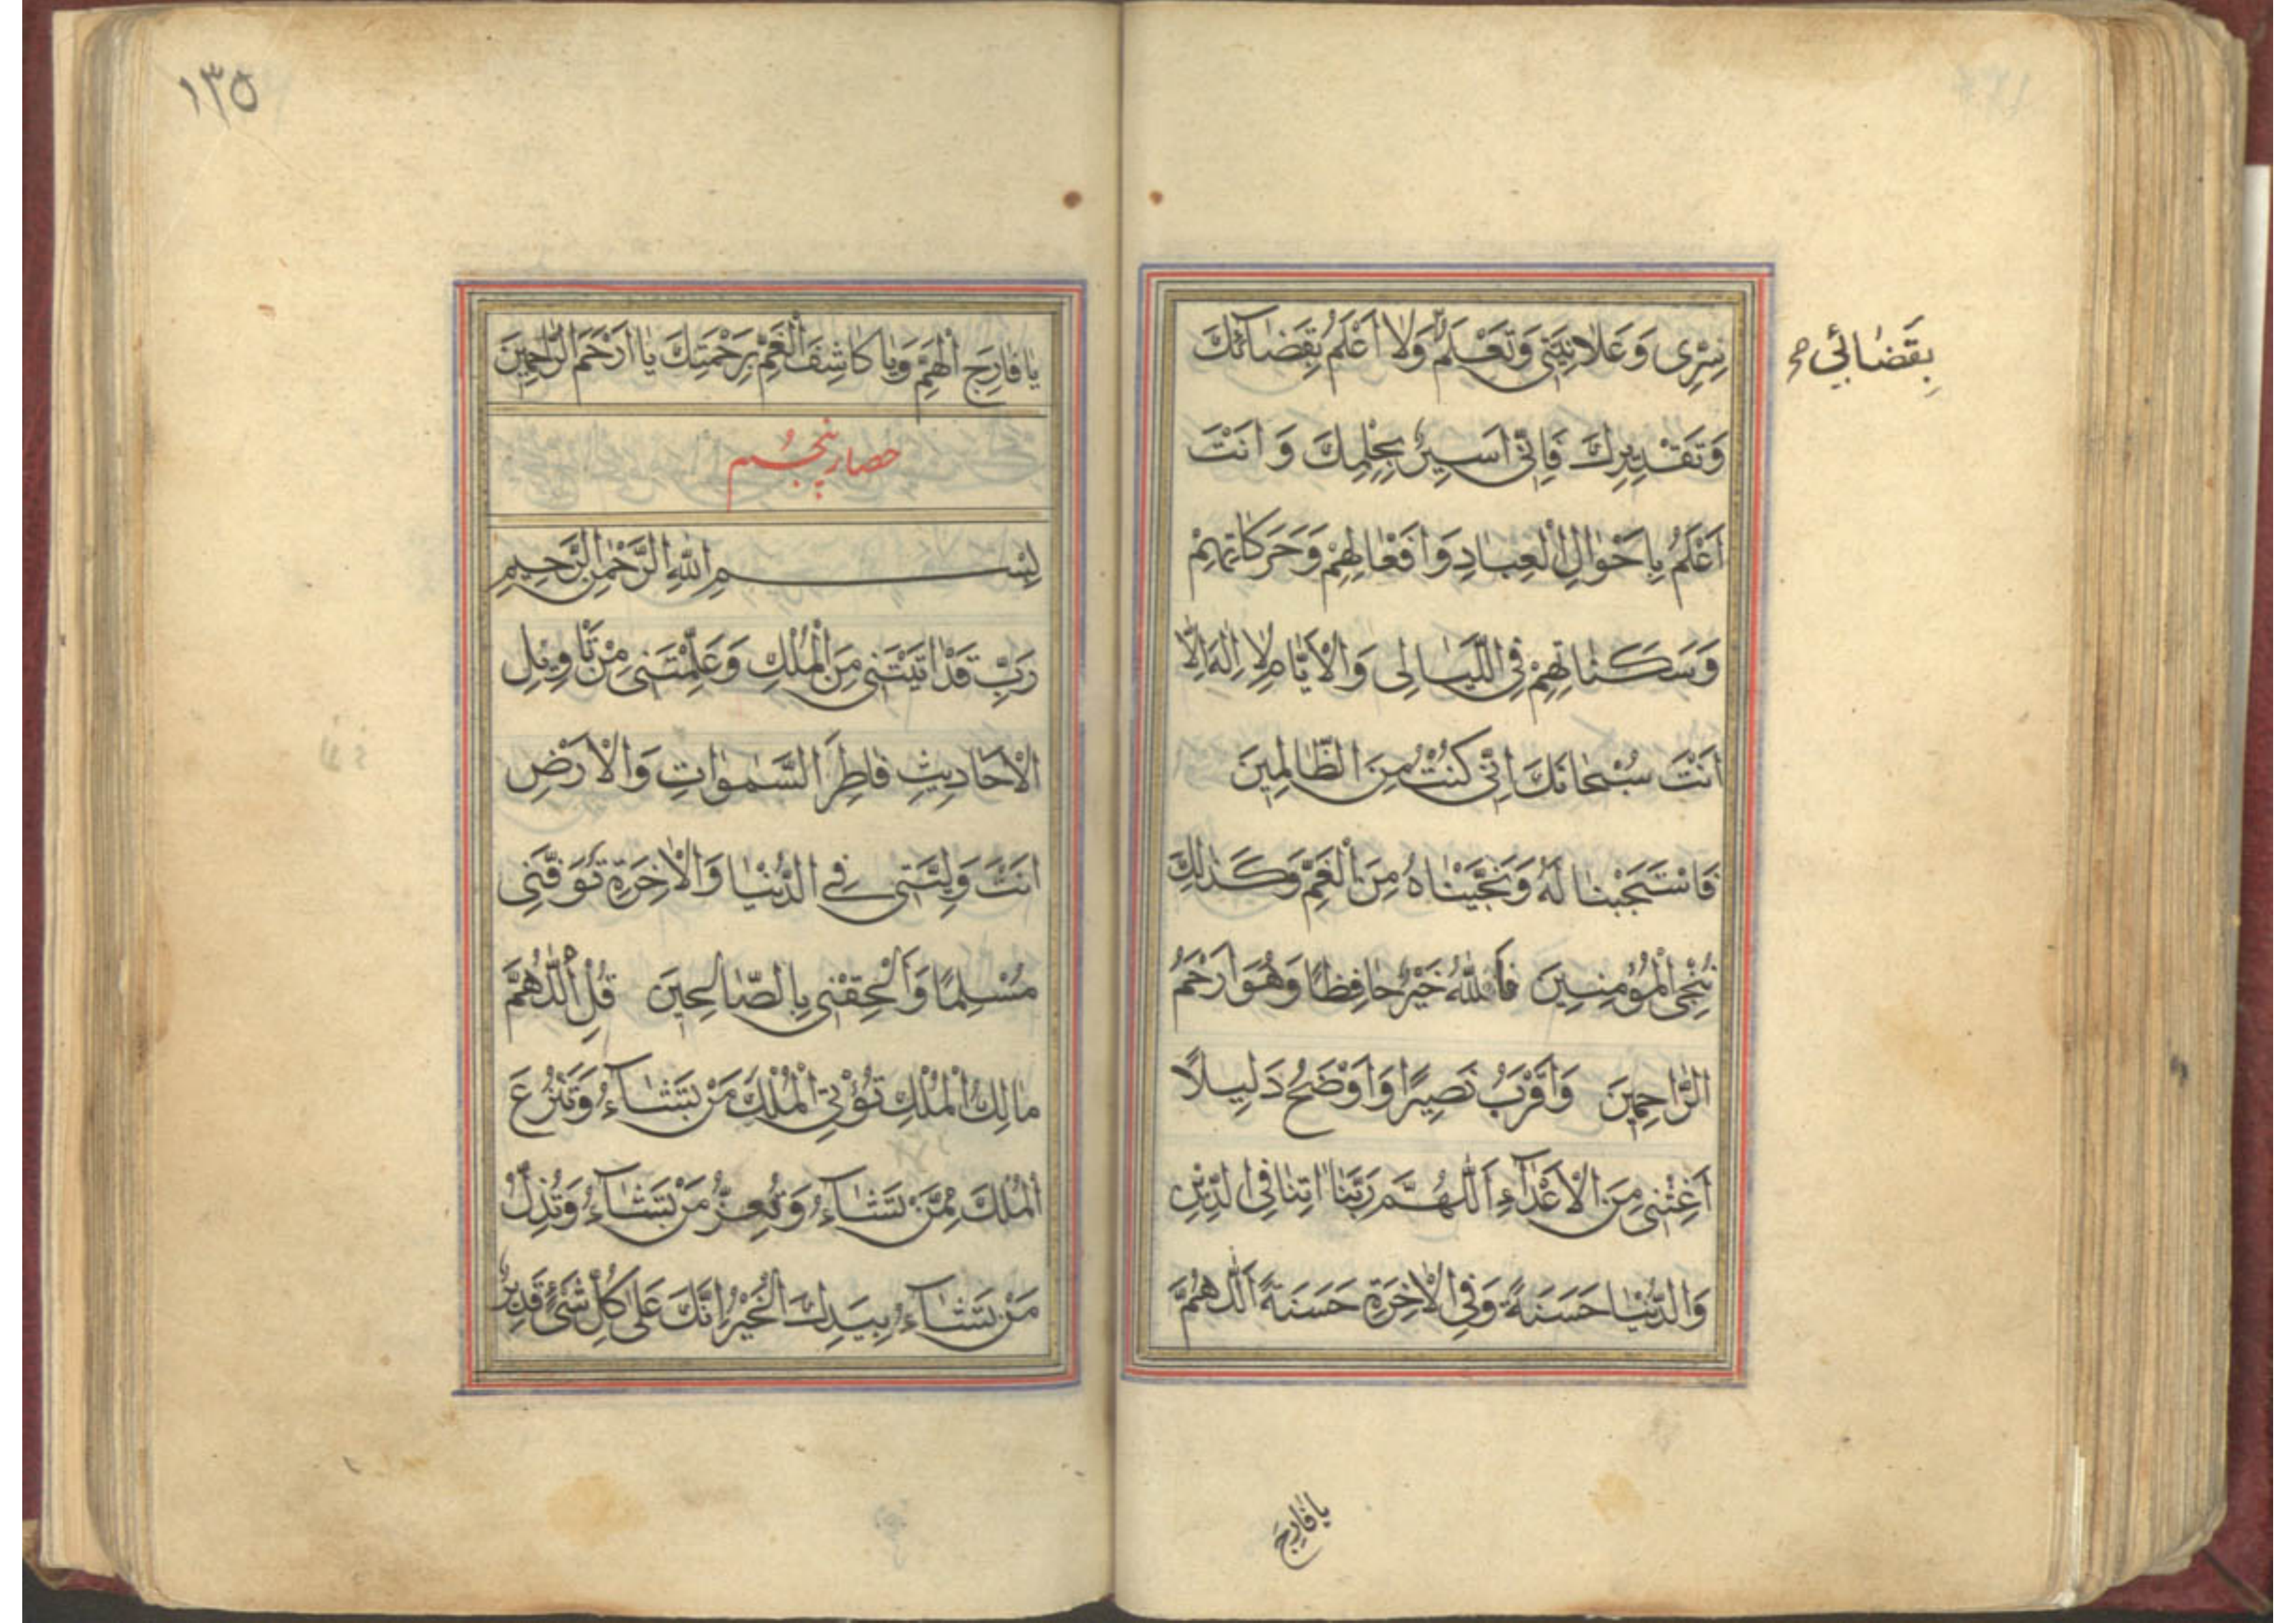 سِرّی وَعَلانِیَتی وَتَعْلَمُ وَلا اَعْلَمُ بِقَضائِكَ
بِقَضائي صح
وَتَقْدِیرِكَ فَاِنّی اَسیرٌ بِحِلْمِكَ وَ اَنْتَ
اَعْلَمُ بِاَحْوالِ الْعِبادِ وَاَفْعالِهِمْ وَحَرَكاتِهِمْ
وَسَكَناتِهِمْ فِی اللَّیالی وَالْاَیّامِ لا اِلهَ اِلّا
اَنْتَ سُبْحانَكَ اِنّی كُنْتُ مِنَ الظّالِمِینَ
فَاسْتَجَبْنا لَهُ وَنَجَّیْناهُ مِنَ الْغَمِّ وَكَذلِكَ
نُنْجِی الْمُؤْمِنِینَ فَاللّهُ خَیْرٌ حافِظًا وَهُوَ اَرْحَمُ
الرّاحِمِینَ وَاَقْرَبُ نَصِیرًا وَاَوْضَحُ دَلِیلًا
اَغِثْنی مِنَ الْاَعْدآءِ اَللّهُمَّ رَبَّنا اتِنا فِی الدِّینِ
وَالدُّنْیا حَسَنَةً وَفِی الْاخِرَةِ حَسَنَةً اَللّهُمَّ
یا فارِجَ
١٣٥
یا فارِجَ الْهَمِّ وَیا كاشِفَ الْغَمِّ بِرَحْمَتِكَ یا اَرْحَمَ الرّاحِمِینَ
حصار پنجُم
بِسْمِ اللّهِ الرَّحْمنِ الرَّحِیمِ
رَبِّ قَدْ اتَیْتَنی مِنَ الْمُلْكِ وَعَلَّمْتَنی مِنْ تَاْوِیلِ
الْاَحادِیثِ فاطِرَ السَّمواتِ وَالْاَرْضِ
اَنْتَ وَلِیّی فِی الدُّنْیا وَالْاخِرَةِ تَوَفَّنی
مُسْلِمًا وَاَلْحِقْنی بِالصّالِحِینَ قُلِ اللّهُمَّ
مالِكَ الْمُلْكِ تُؤْتِی الْمُلْكَ مَنْ تَشآءُ وَتَنْزِعُ
الْمُلْكَ مِمَّنْ تَشآءُ وَتُعِزُّ مَنْ تَشآءُ وَتُذِلُّ
مَنْ تَشآءُ بِیَدِكَ الْخَیْرُ اِنَّكَ عَلی كُلِّ شَیْءٍ قَدِیرٌ